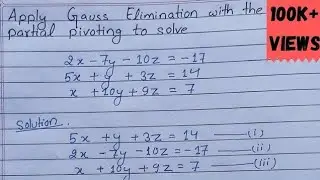 Apply Gauss Elimination with the
partial pivoting to solve
2x - 7y - 10z = -17
5x + y + 3z = 14
x + 10y + 9z = 7
Solution.
5x + y + 3z = 14 —(i)
2x - 7y - 10z = -17 —(ii)
x + 10y + 9z = 7 —(iii)
100K+
VIEWS